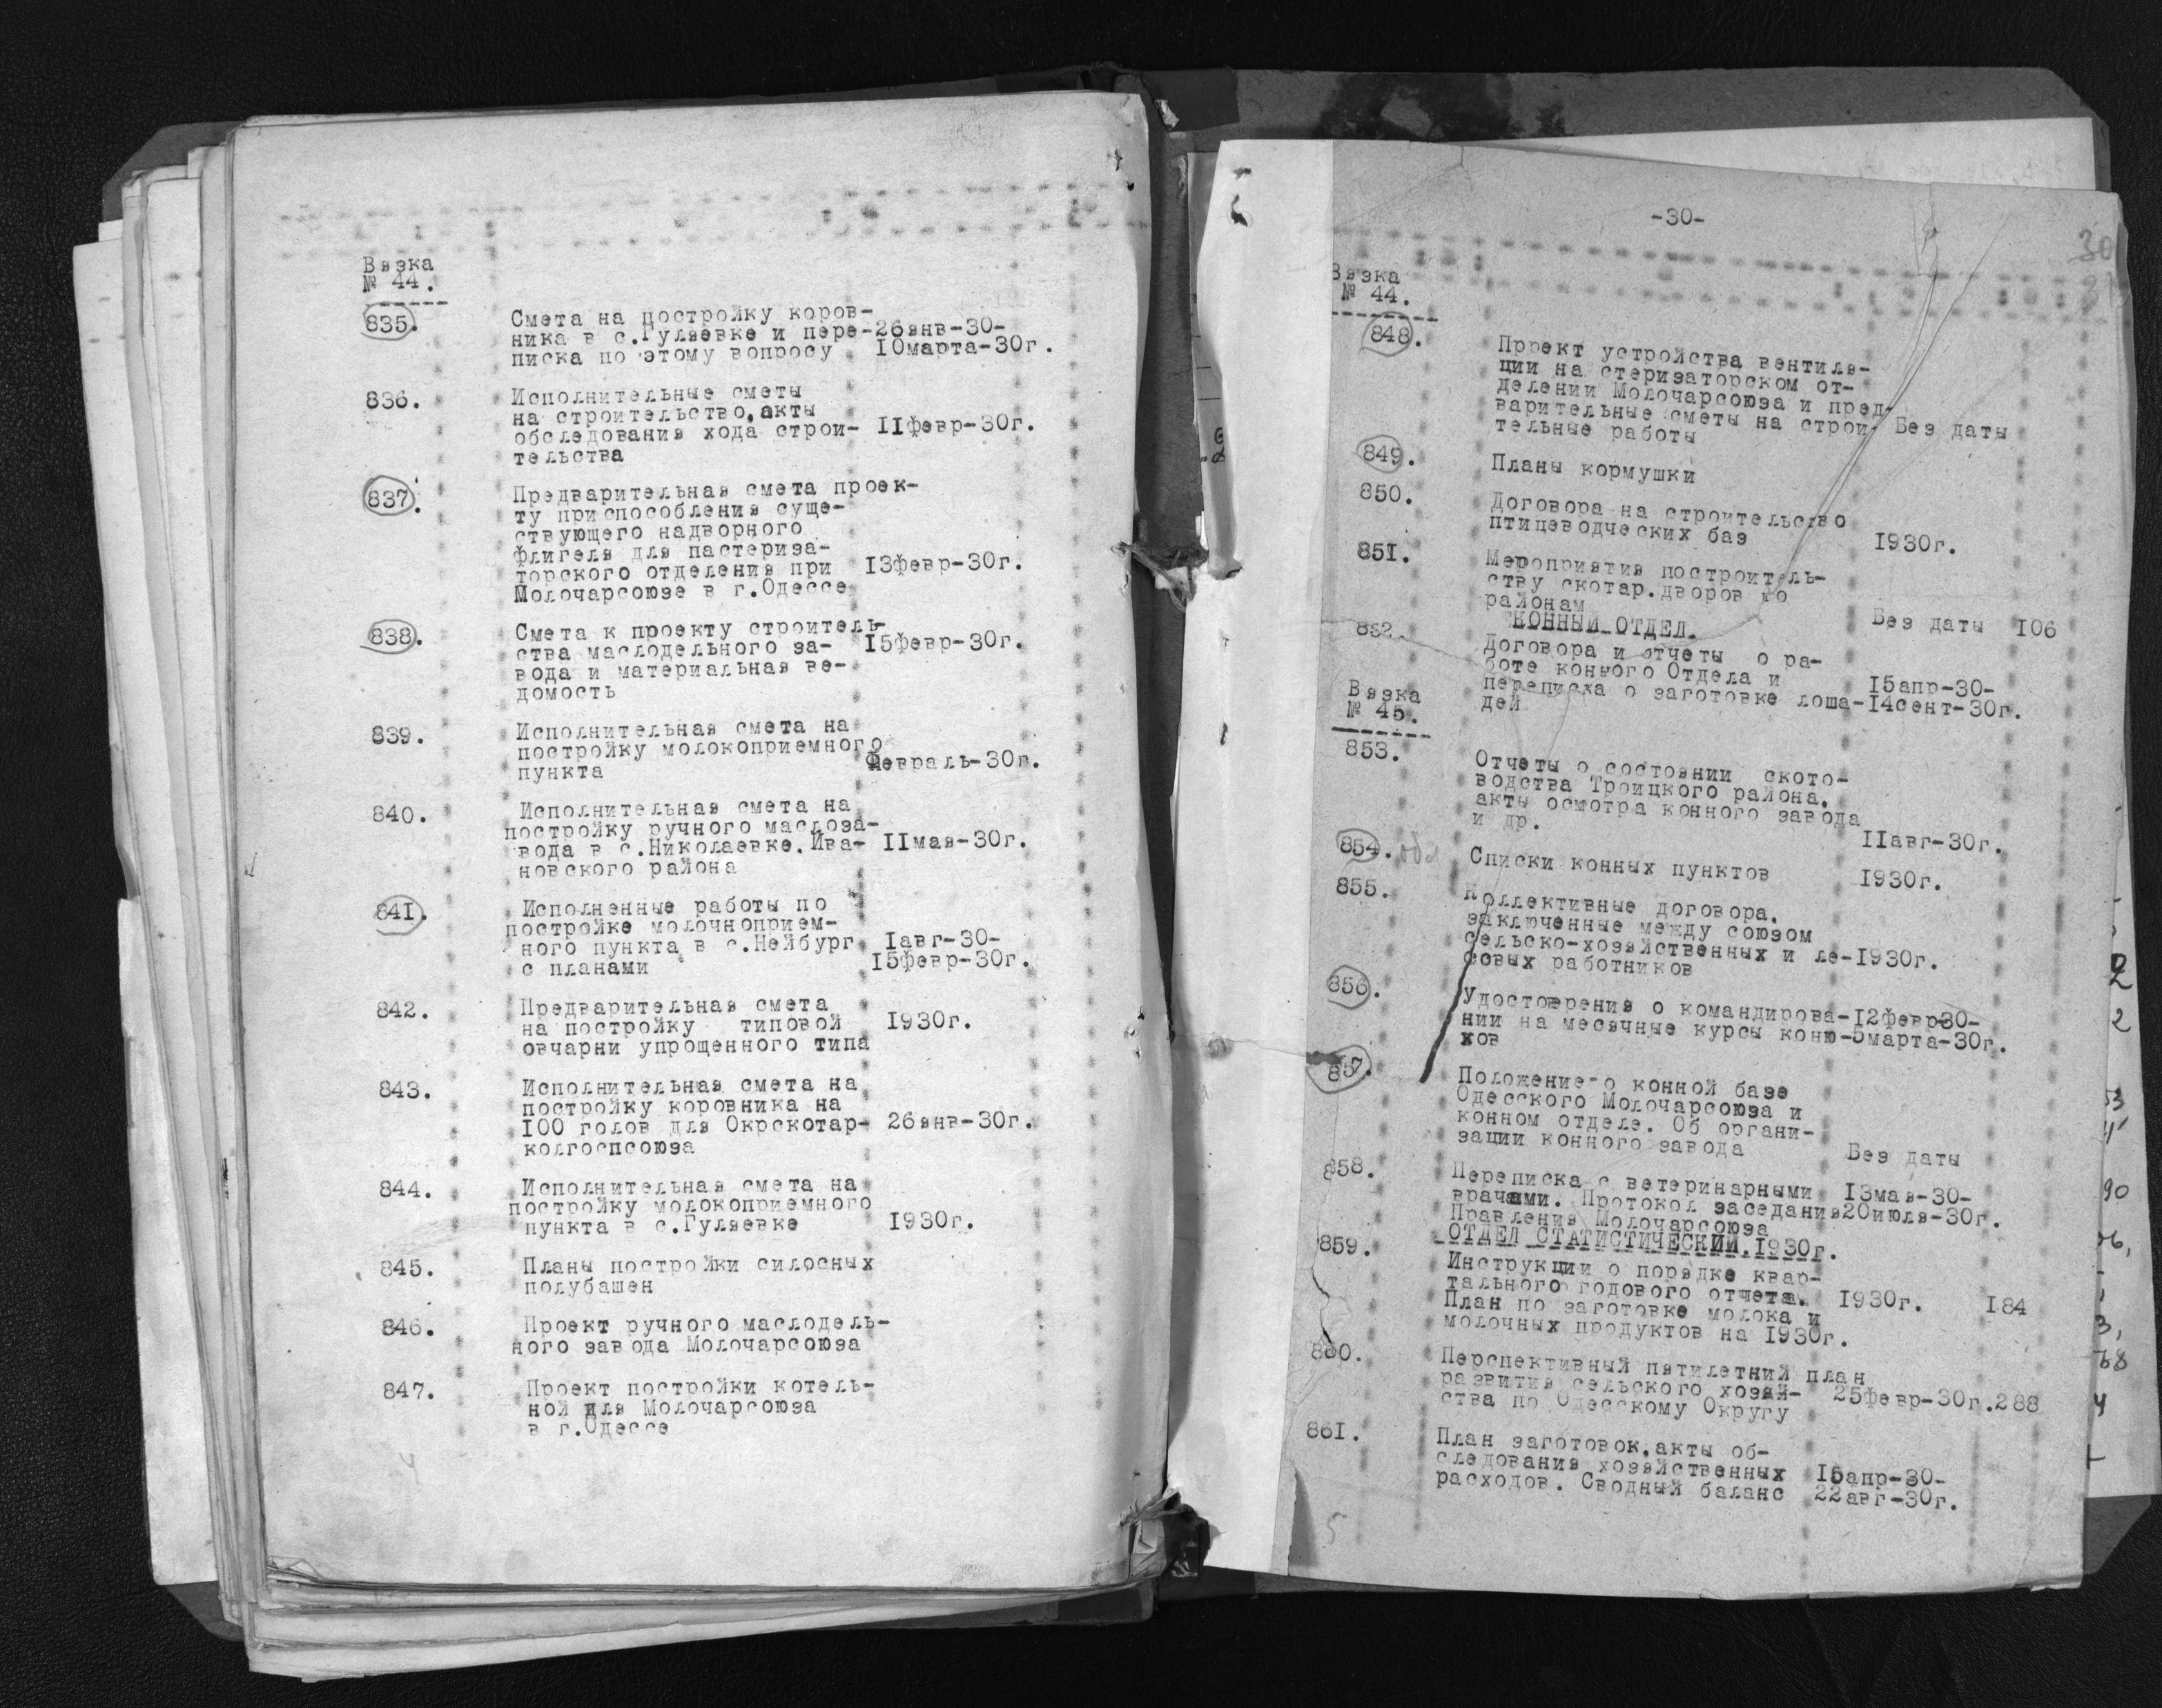 Вязка
№ 44.
835. Смета на постройку коров-
ника в с.Гуляевке и пере- 26янв-30-
писка по этому вопросу 10марта-30г.
836. Исполнительные сметы
на строительство,акты
обследования хода строи- 11февр-30г.
тельства
837. Предварительная смета проек-
ту приспособления суще-
ствующего надворного
флигеля для пастериза-
торского отделения при 13февр-30г.
Молочарсоюзе в г.Одессе
838. Смета к проекту строитель-
ства маслодельного за- 15февр-30г.
вода и материальная ве-
домость
839. Исполнительная смета на
постройку молокоприемного
пункта Февраль-30г.
840. Исполнительная смета на
постройку ручного маслоза-
вода в с.Николаевке,Ива- 11мая-30г.
новского района
841. Исполненные работы по
постройке молочноприем-
ного пункта в с.Нейбург 1авг-30-
с планами 15февр-30г.
842. Предварительная смета
на постройку типовой 1930г.
овчарни упрощенного типа
843. Исполнительная смета на
постройку коровника на
100 голов для Окрскотар- 26янв-30г.
колгоспсоюза
844. Исполнительная смета на
постройку молокоприемного
пункта в с.Гуляевке 1930г.
845. Планы постройки силосных
полубашен
846. Проект ручного маслодель-
ного завода Молочарсоюза
847. Проект постройки котель-
ной для Молочарсоюза
в г.Одессе
-30-
30
Вязка
№ 44.
848. Проект устройства вентиля-
ции на стеризаторском от-
делении Молочарсоюза и пред-
варительные сметы на строи- Без даты
тельные работы
849. Планы кормушки
850. Договора на строительство
птицеводческих баз 1930г.
851. Мероприятия построитель-
ству скотар.дворов по
районам Без даты 106
КОННЫЙ ОТДЕЛ.
852. Договора и отчеты о ра-
боте конного Отдела и 15апр-30-
переписка о заготовке лоша- 14сент-30г.
дей
Вязка
№ 45.
853. Отчеты о состоянии ското-
водства Троицкого района,
акты осмотра конного завода
и др. 11авг-30г.
854. Списки конных пунктов 1930г.
855. Коллективные договора,
заключенные между союзом
сельско-хозяйственных и ле- 1930г.
совых работников
856. Удостоверения о командирова- 12февр30-
нии на месячные курсы коню- 5марта-30г.
хов
857. Положение о конной базе
Одесского Молочарсоюза и
конном отделе. Об органи-
зации конного завода Без даты
858. Переписка с ветеринарными 13мая-30-
врачами. Протокол заседания 20июля-30г.
Правления Молочарсоюза
ОТДЕЛ СТАТИСТИЧЕСКИЙ,1930г.
859. Инструкции о порядке квар-
тального годового отчета. 1930г. 184
План по заготовке молока и
молочных продуктов на 1930г.
860. Перспективный пятилетний план
развития сельского хозяй- 25февр-30г.288
ства по Одесскому Округу
861. План заготовок,акты об-
следования хозяйственных 15апр-30-
расходов. Сводный баланс 22авг-30г.